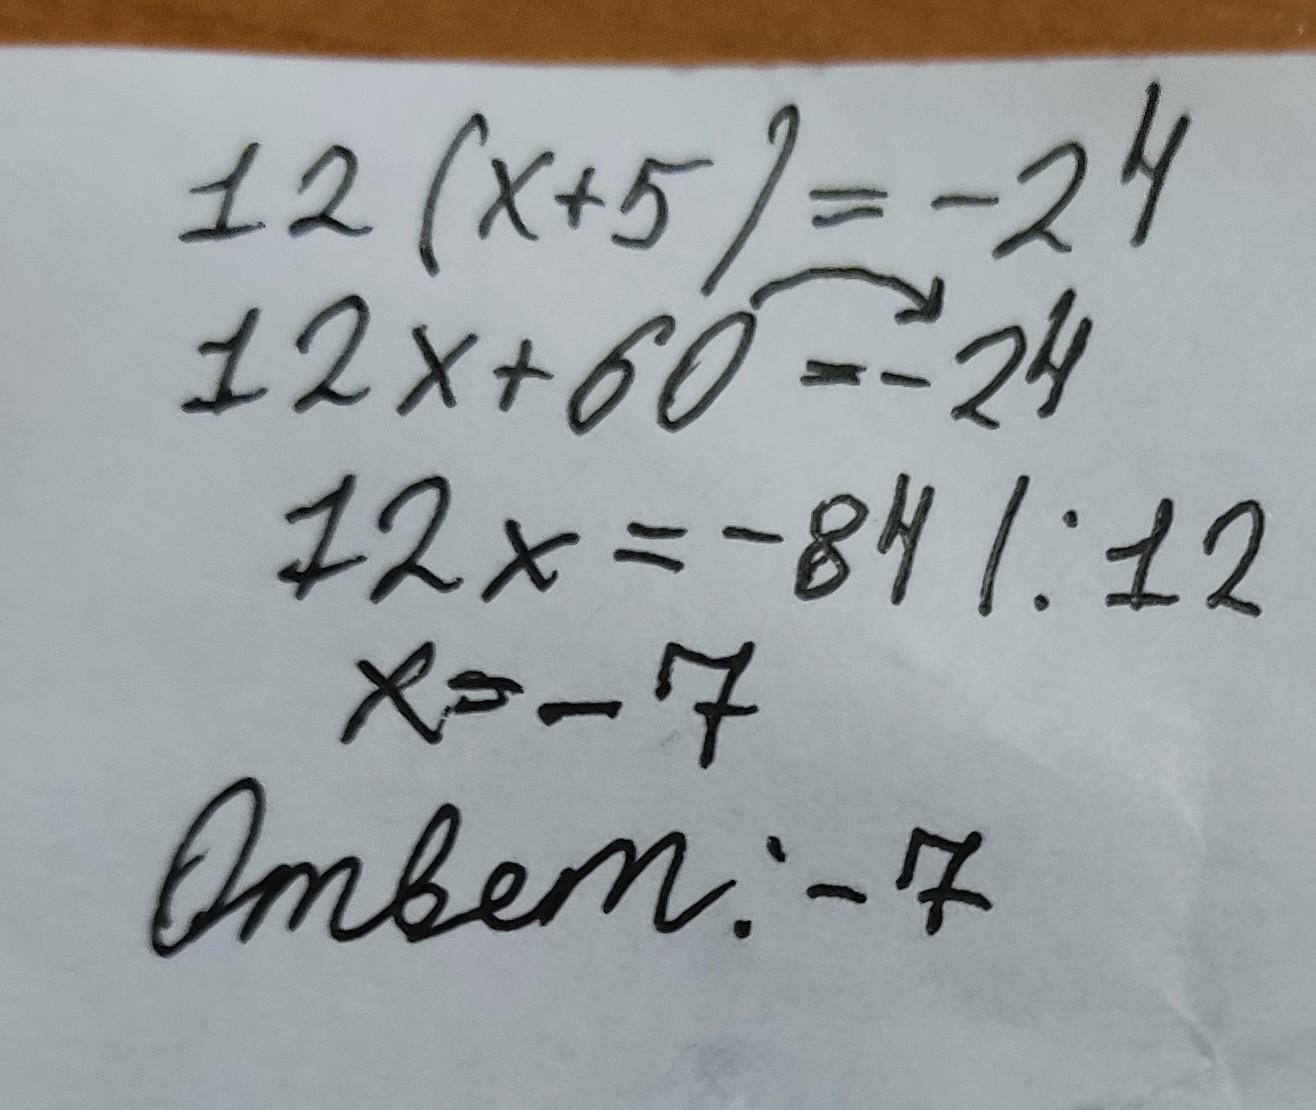 12(x+5)=-24
12x+60=-24
12x=-84 |:12
x=-7
Ответ:-7